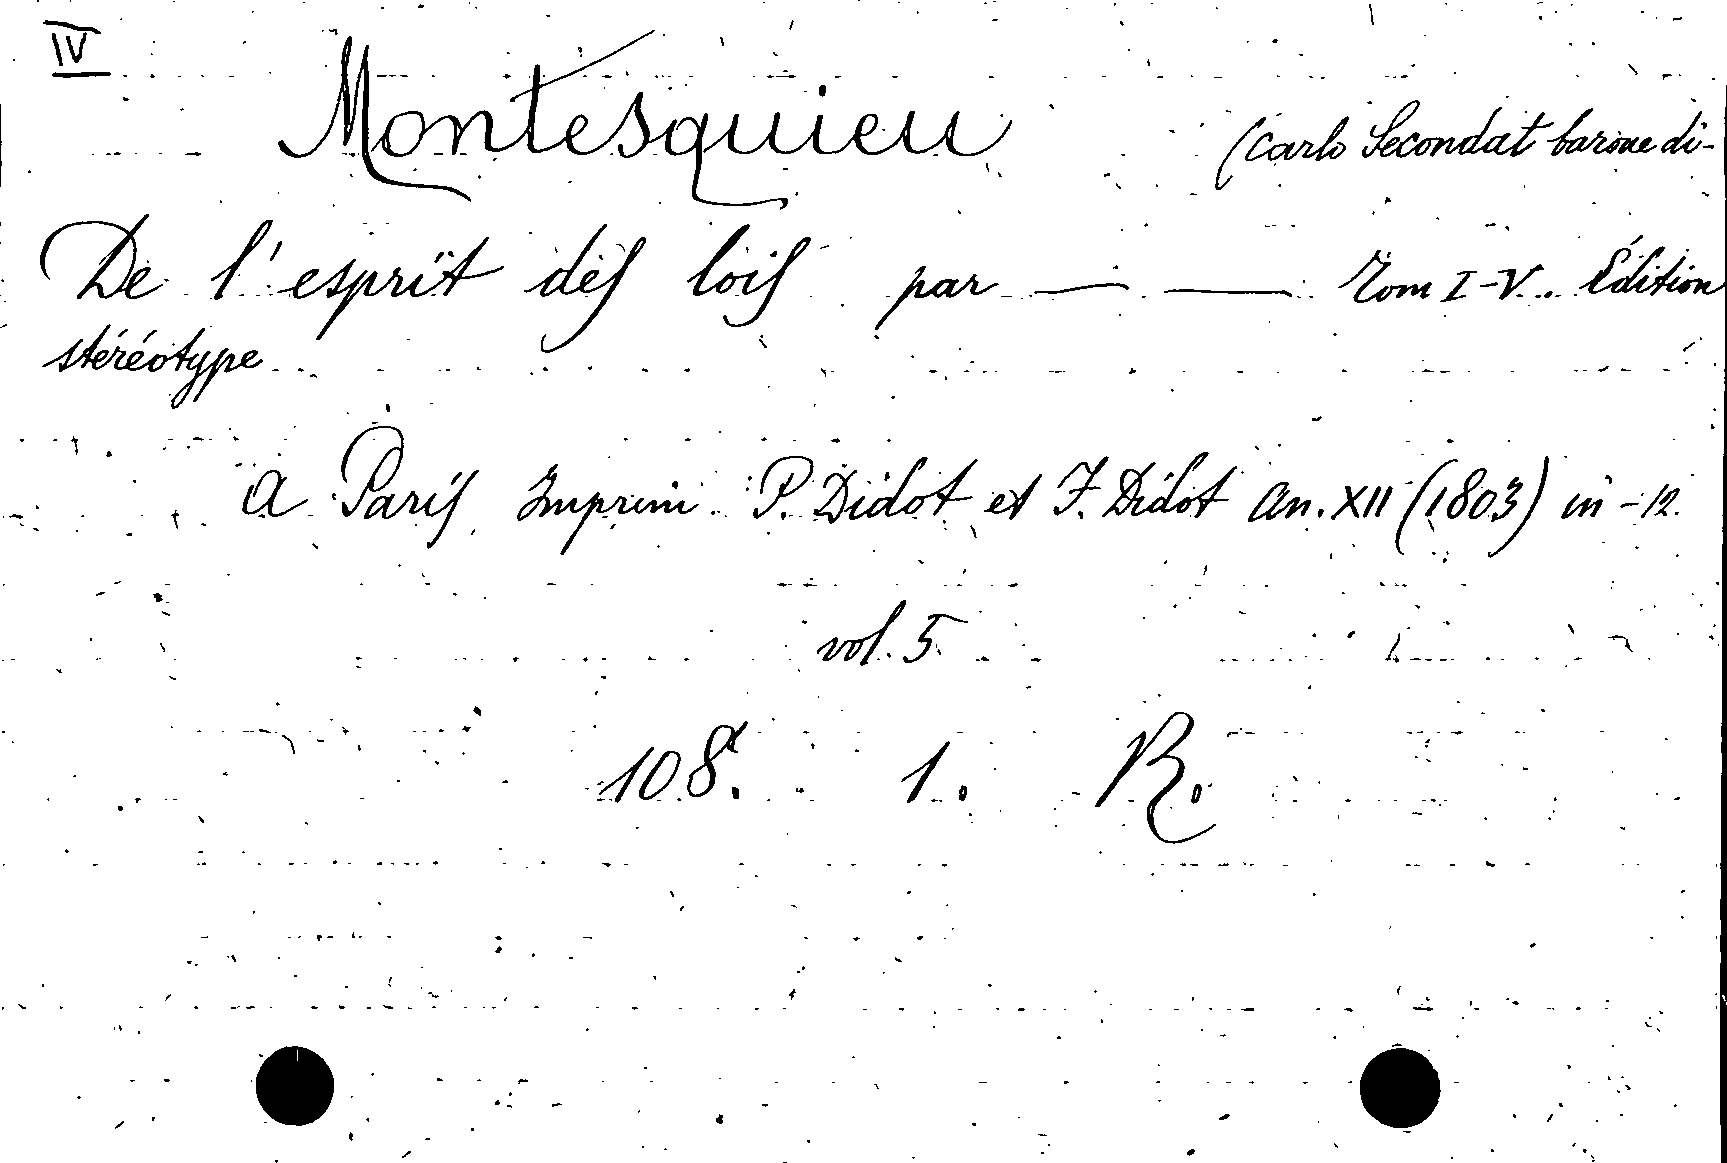 IV
Montesquieu (Carlo Secondat barone di-
De l'esprit des lois par — — Tom I-V. Édition
stéréotype
A Paris Imprim P. Didot et F. Didot An. XII (1803) in-12.
vol. 5
108. 1. R.